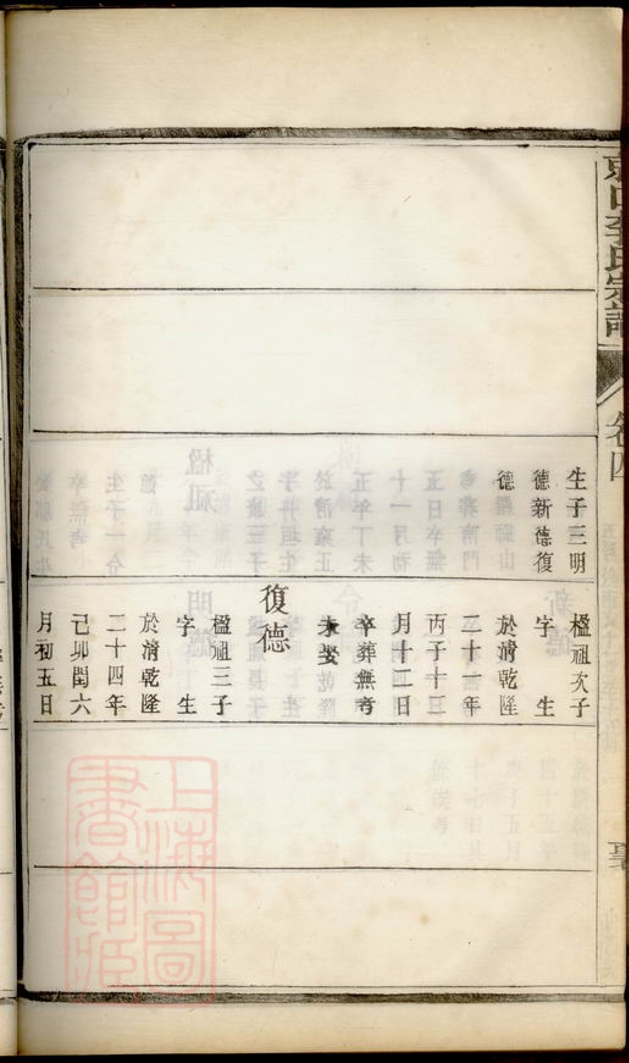 李氏宗譜
卷四
生子三明
德新德復
德
楹祖次子
字　生
於清乾隆
二十一年
丙子十二
月十二日
卒葬無考
未娶
復德
楹祖三子
字　生
於清乾隆
二十四年
己卯閏六
月初五日
上海圖
書館藏